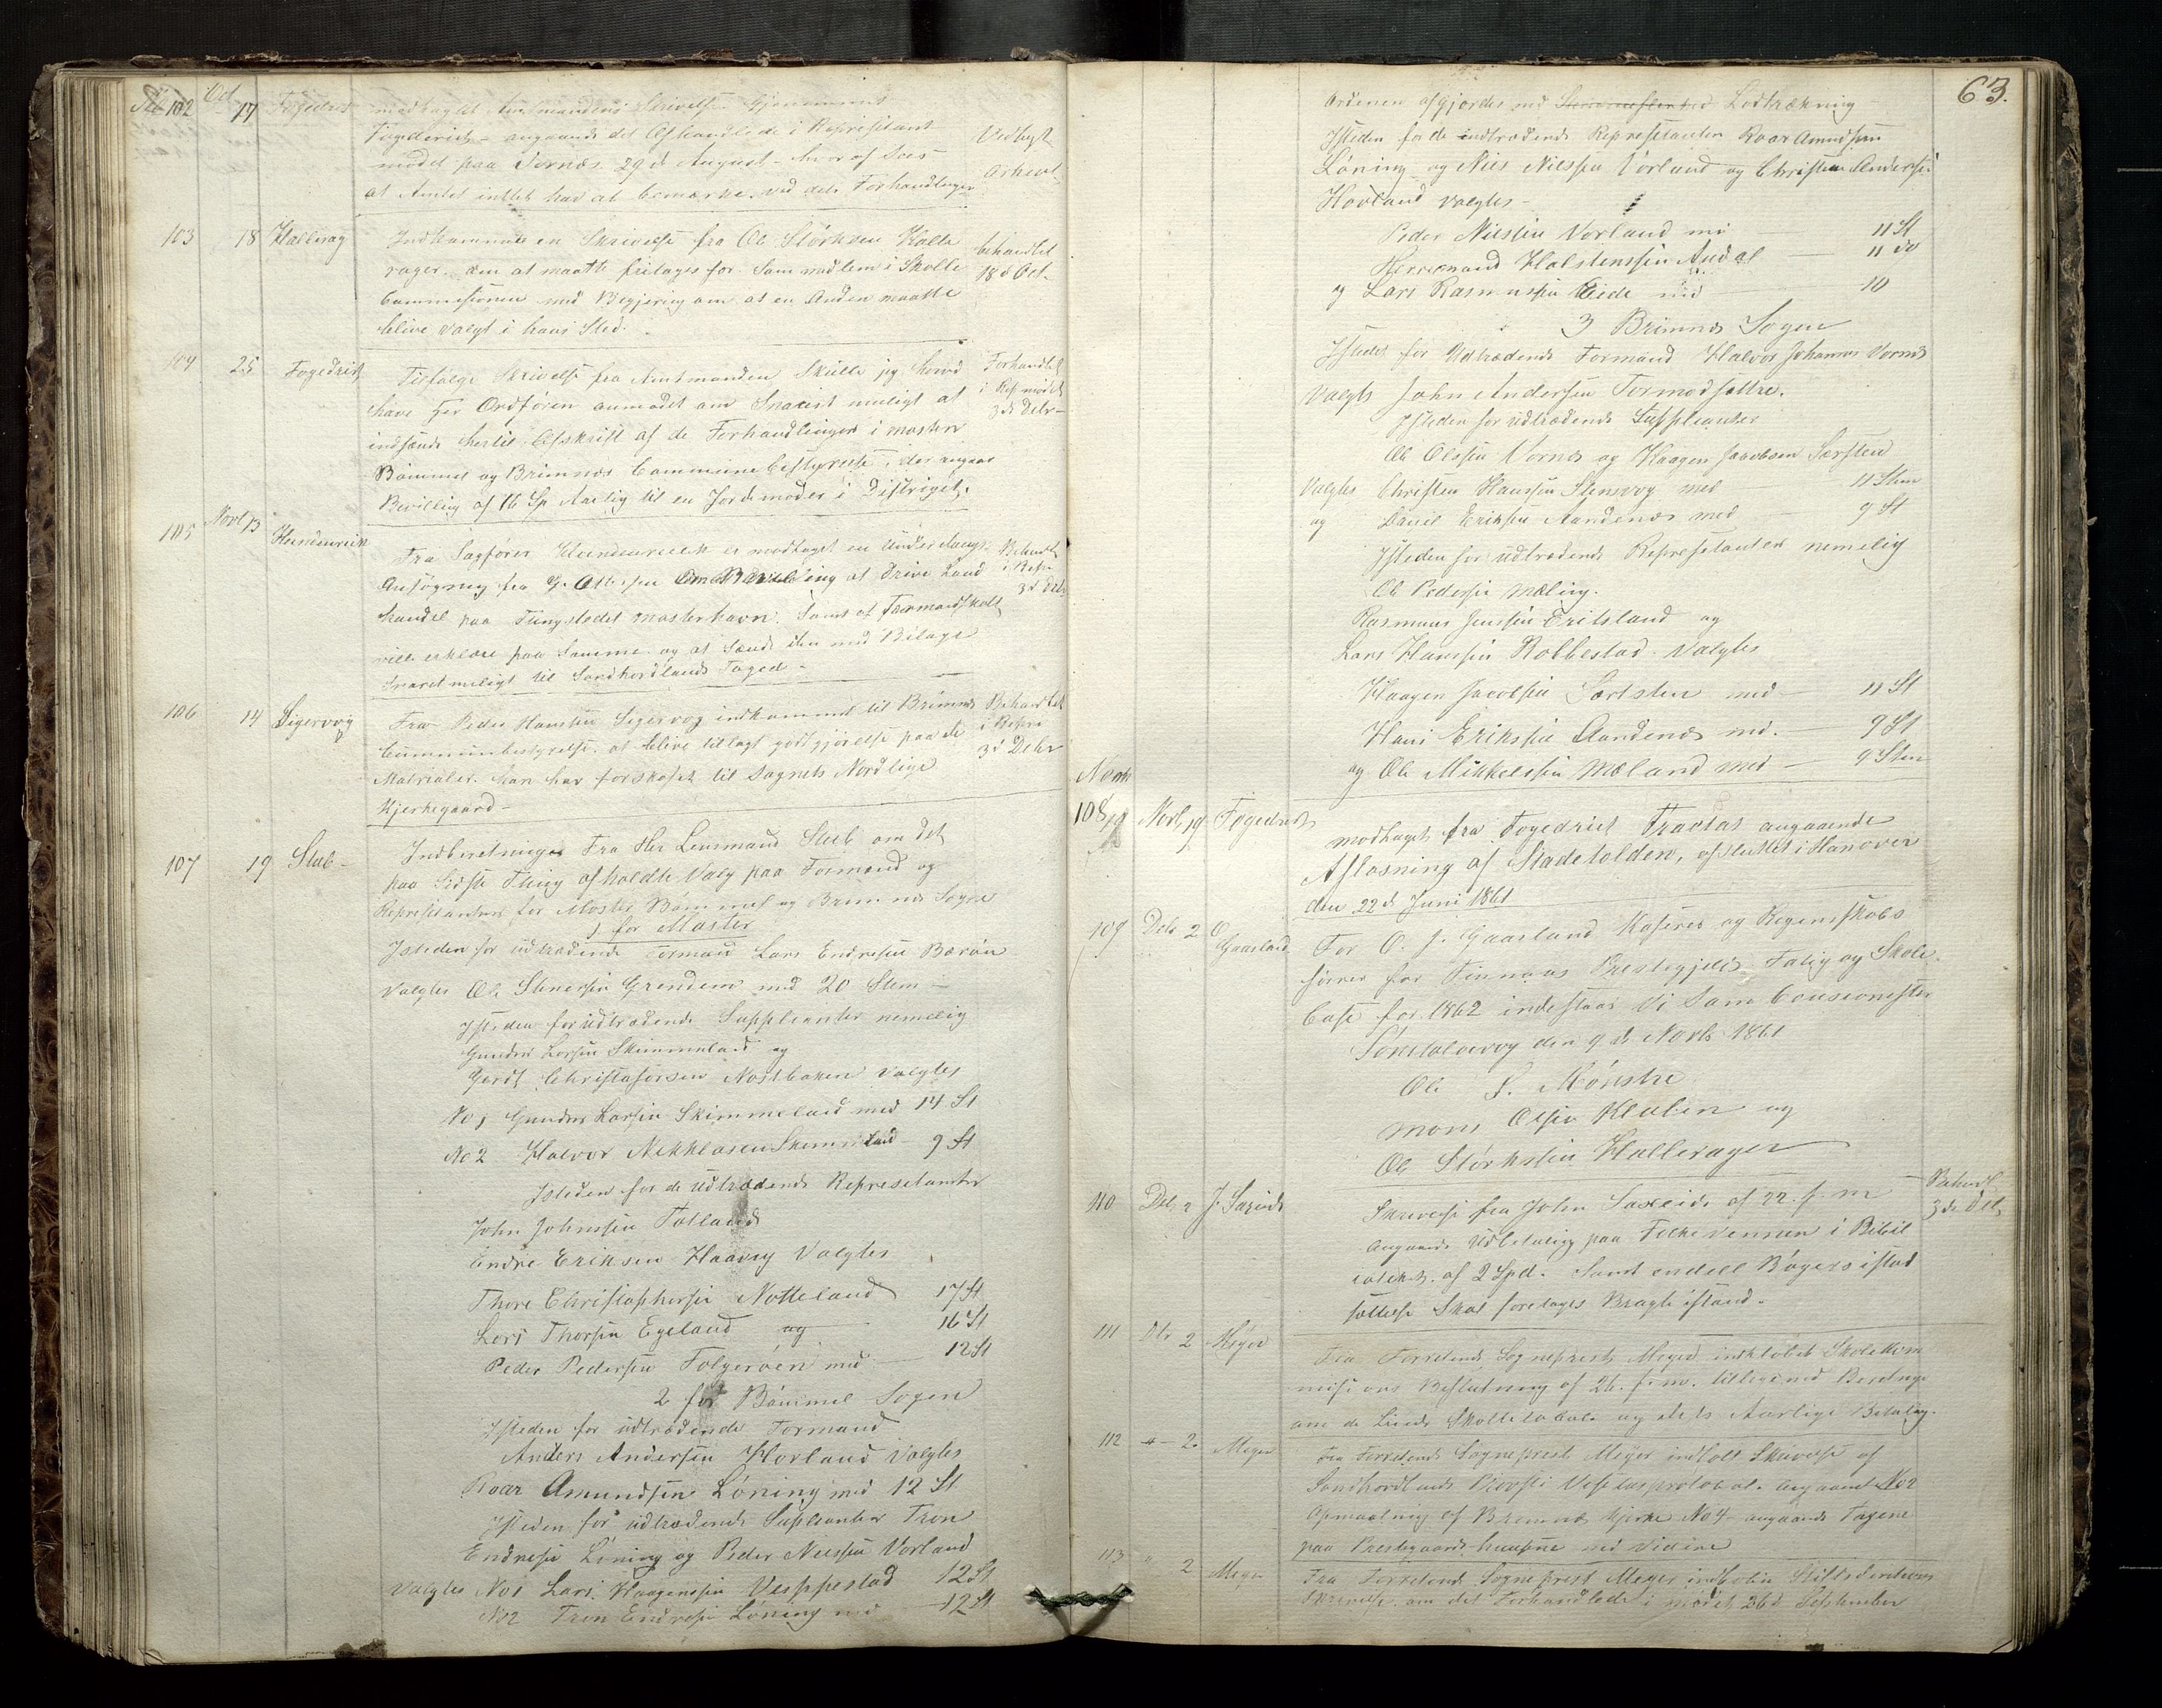 102 Oct 17 Fogedriet modtaget Amtmandens Skrivelse Gjennem
Fogderiet - angaaende det Afhandlede i Represitant
mødet paa Vernæs 29de August - hvoraf Sees
at Amtet intet har at bemærke ved dets Forhandlinger
Vedlagt
Arkivet
103 18 Hallerag Indkommet en Skrivelse fra Ole Størksen Halle
rager den at maatte fritages for Som medlem i Skolle
Commisionen med Begjæring om at en Anden maatte
blive valgt i hans Sted.
behandlet
18d Oct
104 25 Fogedriet Tilfølge Skrivelse fra Amtmanden Skulle jeg herved
have Hr Ordføren anmodet om Snarest muligt at
indsende hertil Afskrift af de Forhandlinger i Moster
Bømmel og Brimnæs Communebestyrelse, der angaar
Bevilling af 16 Sp Aarlig til en Jordemoder i Districtet.
Forhandlet
i Rep mødet
3de Debr
105 Novb 13 Fra Sagfører er modtaget en
Ansøgning fra G. Ottesen Om Bevilling at Drive Land
handel paa Tingstedet Mosterhavn. Samt at Formandskabet
ville erklære paa Samme og at Sende den med Bilage
Snarest meligt til Sondhordlands Foged -
Behandl
i Repr
3d Debr
106 14 Sigervog Fra Peder Hansen Sigervog indkommet til Brimnes
Cummunbestyrelse at blive tillagt godtgjørelse paa de
Matrialer han har forskafet til Sognets Nordlige
Kjerkegaard -
Behandlet
i Repre
3d Debr
107 19 Stub - Indberetninger Fra Her Lensmand Stub om det
paa Sidste Thing afholdte Valg paa Formænd og
Represitanter for Moster Bømmel og Brimnes Sogne
1 for Moster
Isteden for udtrædende Formand Lars Endresen Bærøn
Valgtes Ole Stenersen Grindem med 20 Stem -
Isteden for udtrædende Suppleanter nemelig
Gunder Larsen Skimmeland og
Gerdt Christofersen Nostbaken valgtes
No 1 Gunder Larsen Skimmeland med 14 St
No 2 Halvor Nikklasen Skimmeland - 9 St
Isteden for de Udtrædende Represetanter
John Johnssen Totland
Endre Eriksen Haavig Valgtes
Thore Christophersen Notteland 17 St
Lars Thorsen Egeland og 16 St
Peder Pedersen Folgerøen med 12 St
2 for Bømmel Sogen
Isteden for udtrædende Formand
Anders Andersen Hovland Valgtes
Roar Amundsen Løning med 12 St
Isteden for udtrædende Supleanter Tron
Endresen Løning og Peder Nielsen Vorland
Valgtes No 1 Lars Haagensen Vesppestad 12 St
No 2 Tron Endresen Løning med 12 St
63.
Ordenen afgjordes ved Lodtrækning
Isteden for de indtrædende Represitanter Roar Amundsen
Løning og Niels Nilssen Vorland og Christian Andersen
Hovland valgtes -
Peder Nielsen Vorland med 11 St
Herremand Halstenssen Audal 11 do
og Lars Rasmussen Eide med 10
3 Brimnes Sogen
Istedet for Udtrædende Formand Halvor Johannes Vernes
Valgts John Andersen Tormodsættre.
Isteden for udtrædende Suppleanter
Ole Olssen Vernes og Haagen Jacobsen Særsten
Valgtes Christen Hanssen Stensvog med 11 Stem
og Daniel Eriksen Aandenes med 9 St
Isteden for udtrædende Represitanter nemelig
Ole Pedersen Mæling.
Rasmus Jenssen Eritsland og
Lars Hanssen Robbestad. Valgtes
Haagen Jacobsen Sørtsten med 11 St
Hans Erikssen Aandenes md. 9 St
og Ole Mikkelssen Mæland med 9 Stem
108 Novb 19 Fogedriet modtaget fra Fogedriet Tractat angaaende
Afløsning af Stadetolden, afsluttet i Hanover
den 22de Juni 1861
109 Debr 2 O Gaasland For O. J. Gaasland Kaserer og Regenskabs
fører for Finnaas Prestegjelds Fatig og Skole
Case for 1862 indestaar Vi Som Causionister
den 9de Novb 1861
Ole S. Mønstre
Mons Olsen Kluben og
Ole Størkssen Hallerager
110 Deb 2 J. Saxeide Skrivelse fra John Saxeide af 22. f. m
Angaaende Udbetaling paa Folkevennen i Bibil
iotekt. af 2 Spd. Samt endeel Bøgers istad
sættelse Skal foretages Bragte istand -
Behandl
3de Deb
111 Dbr 2 Meyer Fra Forretends Sogneprest Meyer indkløbet Skolekom
misions Beslutning af 26. f. m. tilligemed Beretnge
om de Leiede Skollelokale og dets Aarlige Betaling.
112 - 2. Meyer Fra Forretends Sogneprest Meyer indkolt Skrivelse af
Sondhordlands Provsti Visitasprotokol. angaaende No 2
Opmaaling af Bremnes Kjerke No 4 angaaende Tagene
paa Prestegaards husene ved
113 " 2 Meyer Fra Forretends Sogneprest Meyer Stiftsdirektions
Skrivelse om det Forhandlede i mødet 26d September